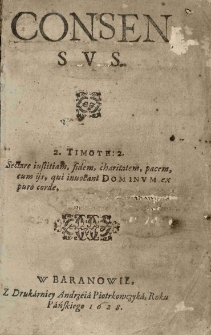 CONSEN
SVS.
2. TIMOTH: 2.
Sectare iustitiam, fidem, charitatem, pacem,
cum ijs, qui inuocant DOMINVM ex
puro corde.
W BARANOWIE,
Z Drukárniey Andrzeiá Piotrkowczyká, Roku
Páńskiego 1628.